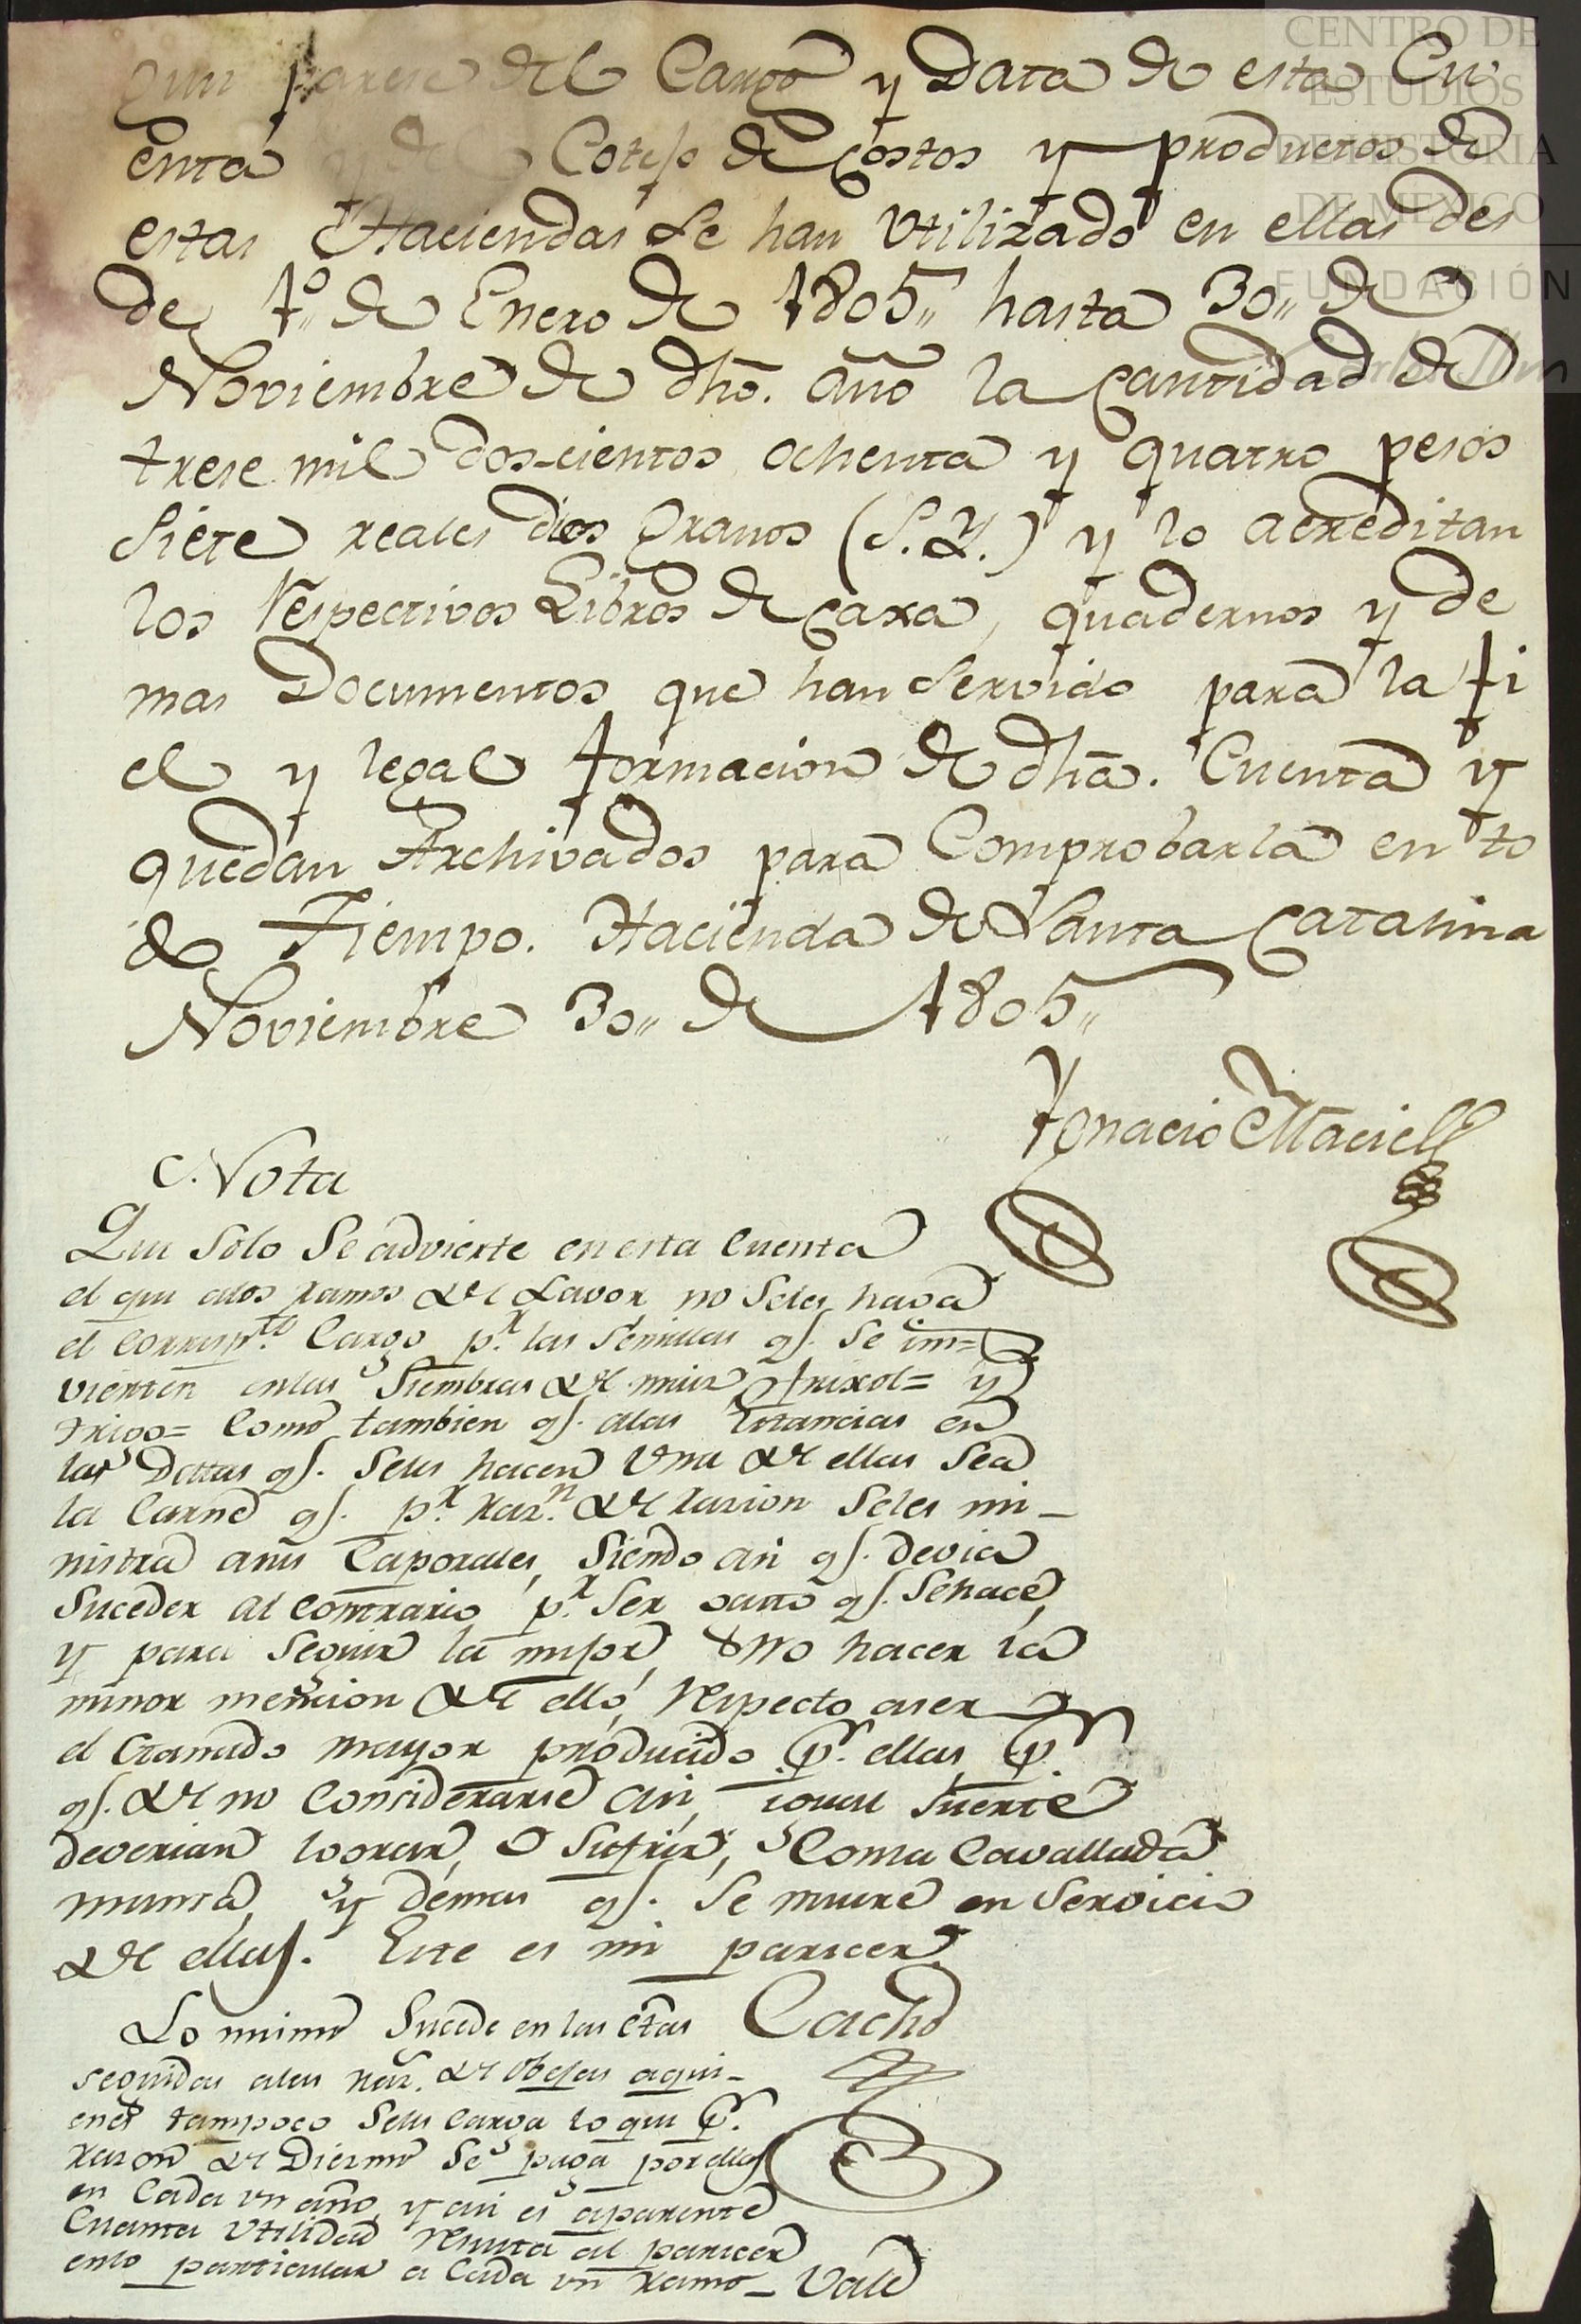 CENTRO DE
ESTUDIOS
DE HISTORIA
DE MEXICO
FUNDACIÓN
que parese del Cargo y Data de esta Cu
enta y del Cotejo de Costos y productos de
estas Haciendas Se han Vtilizado en ellas des
de 1o,, de Enero de 1805,, hasta 30,, de
Noviembre de dho. año la Cantidad de
trese mil dos-cientos ochenta y quatro pesos
Siete reales dos Granos (S.Y.) y lo acreditan
los Respectivos Libros de Caxa, quadernos y de
mas Documentos que han Servido para la fi
el y legal formacion de dha. Cuenta y
quedan Archivados para Comprobarla en to
do Tiempo. Hacienda de Santa Catarina
Noviembre 30,, de 1805,,
Ygnacio Maciel
Nota
Que Solo Se advierte en esta Cuenta
el que alos ramos de Lavor no Seles haga
el Corresp.te Cargo p.r las Semillas q.e Se im=
vierten enlas Siembras de mais, frixol= y
trigo= Como tambien q.e alas Estancias en
las Dattas q.e Seles hacen Vna de ellas Sea
la Carne q.e p.r raz.n de racion Seles mi-
nistra asus Caporales, Siendo asi q.e devia
Suceder al Contrario p.r Ser gatto q.e Sehace,
y para Seguir la mejor, o no hacer la
menor mencion de ello, Respecto aser
el Ganado mayor producido p.r ellas, p.r
q.e de no Considerarse asi, igual Suerte
deverian lograr, o Sufrir, Como la Cavallada
mansa, y demas q.e Se muere en Servicio
de ellas. Este es mi parecer.
Cacho
Lo mismo Sucede en las Ctas
seguidas alas haz. de Obejas aqui-
enes tampoco Seles Carga lo que p.r
razon de Diezmo Se paga por ellas
en Cada un año, y asi es aparente
Cuanta Vtilidad Resulta al parecer
enlo particular a Cada un ramo- Vale